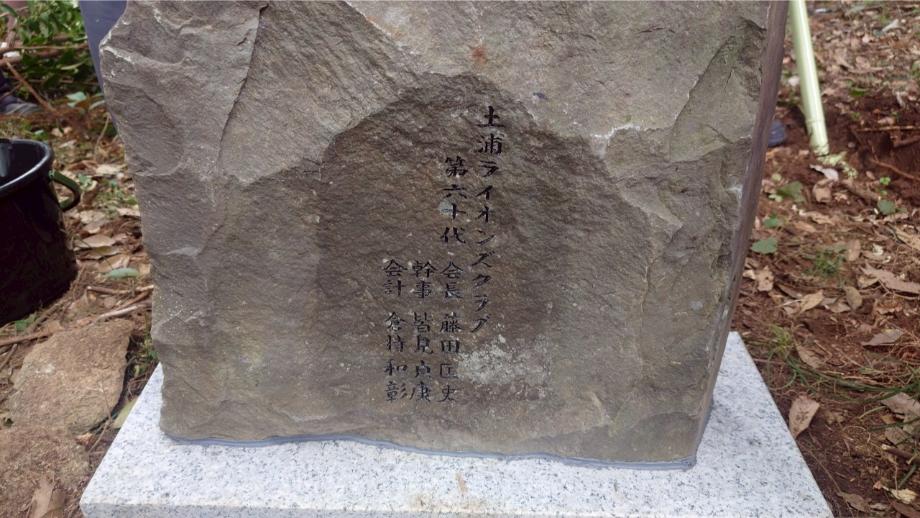 土浦ライオンズクラブ
第六十代 会長 藤田 匡史
幹事 皆見 貞康
会計 倉持 和彰